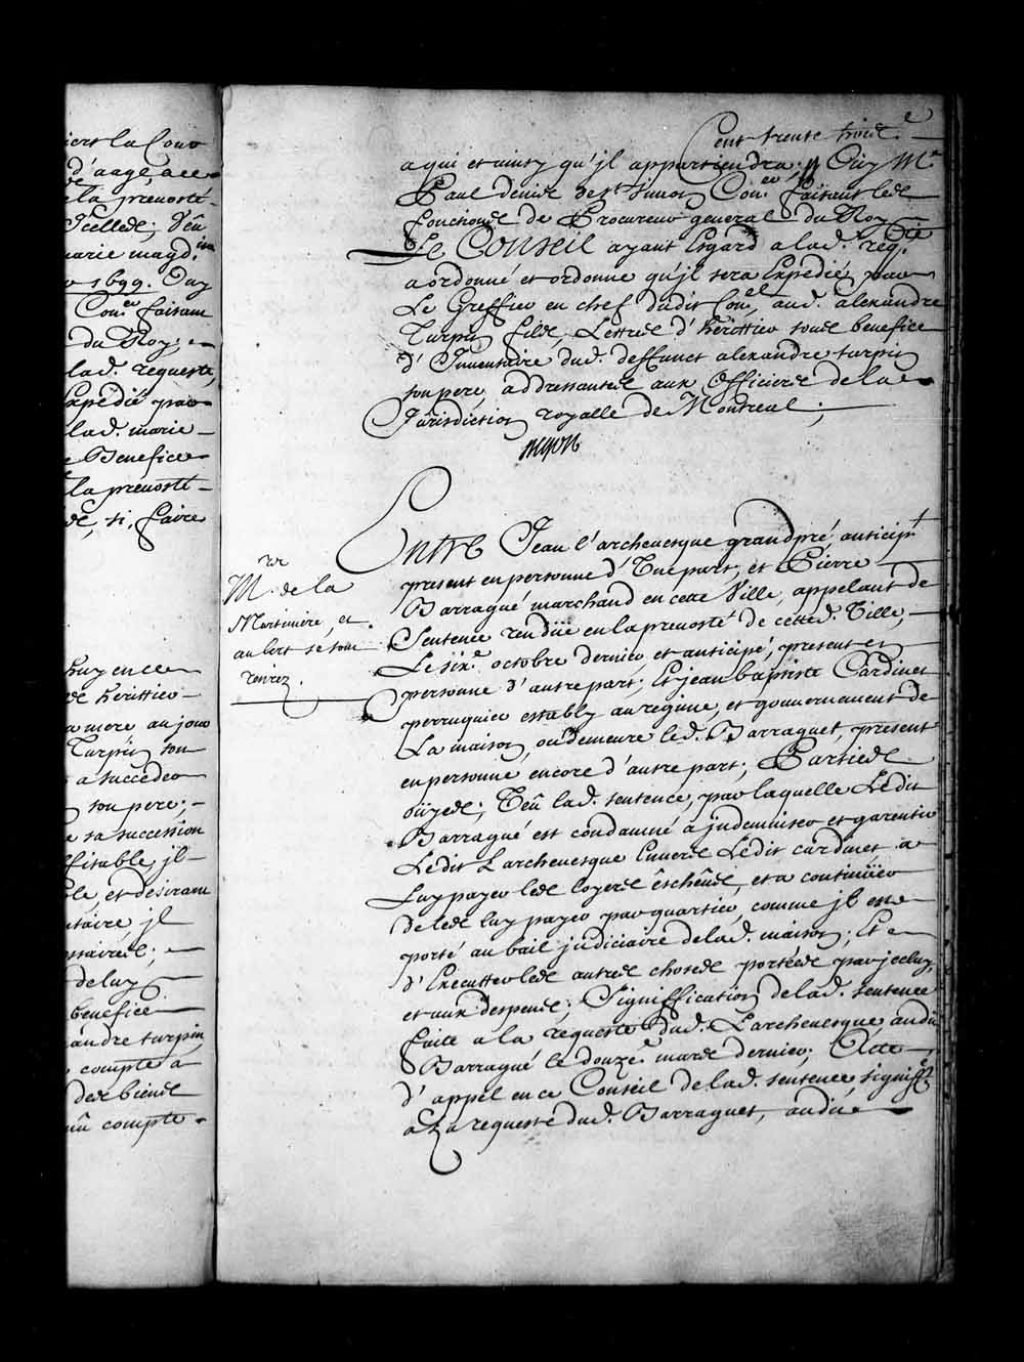 iers la Cour
d'aage, a ce
de la prevosté
Jcelles; Veu
marie magd.ne
1699. Ouy
Con.er faisant
du Roy,
lad. requeste,
Expedié par
lad. marie
Benefice
la prevosté
si, faire
heritier
a mere au jour
Turpin son
a succeder
son pere;
sa succession
jl
et desirant
jl
de luy
benefice
andre turpin
compte a
des biens
compte
Cent trente trois.e
a qui et ainsy qu'jl appartiendra; Ouy M.e
Paul denis de S.t Simon Con.er faisant les
fonctions de Procureur general du Roy
Le Conseil ayant Esgard a lad. req.te
a ordonné et ordonne qu'jl sera Expedié, par
Le Greffier en chef dudit Con.el, aud. alexandre
Turpin fils, Lettres d'heritier sous benefice
d'Inventaire dud. deffunct alexandre turpin
son pere, addressantes aux Officiers de la
Jurisdiction royalle de Montreal;
Entre Jean l'archevesque grandpré, anticip.t
present en personne d'Une part, et Pierre
Barragué marchand en cette Ville, appelant de
Sentence rendüe en la prevosté de cetted. Ville,
Le six.e octobre dernier, et anticipé, present en
personne d'autre part; Et jean baptiste Cardinet
perruquier estably au regime, et gouvernement de
La maison, ou demeure led. Barraguet, present
en personne encore d'autre part; Parties
oüyes; Veû lad. sentence, par laquelle Ledit
Barragué est condamné a judemniser et garentir
Ledit Larchevesque Envers Ledit cardinet, a
Luy payer les loyers êscheus, et a continüer
de les luy payer par quartier, comme jl est
porté au bail judiciaire de lad. maison; Et
d'Executter les autres choses portées par jceluy,
et aux despens; Signiffication de lad. sentence
faite a la requeste dud. Larchevesque audit
Barragué le douze.e mars dernier; Acte
d'appel en ce Conseil de lad. sentence signiff.é
a La requeste dud. Barraguet, audit
M.rs de la
Martiniere, et
aubert se sont
retirez.